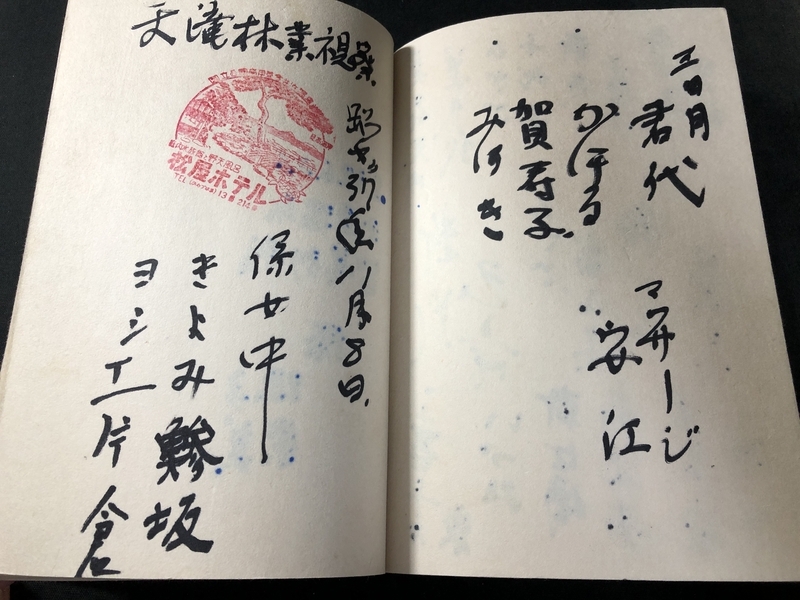 天滝林業視察、
昭和37年八月8日、
松屋ホテル
係女中
きよみ 鯵坂
ヨシエ 片倉
三日月
君代
かほる
賀寿子、
みゆき
マッサージ
安江